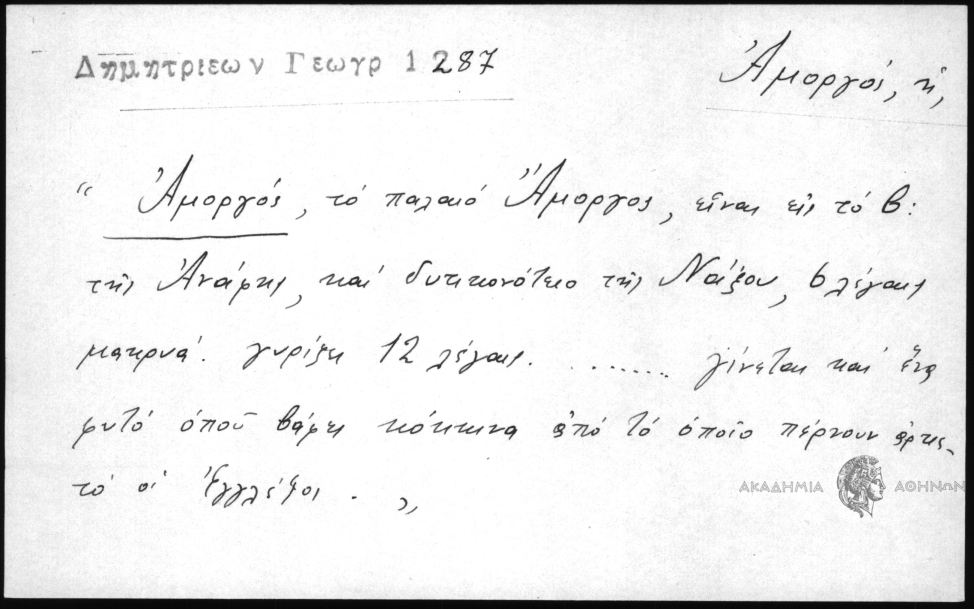 Δημητριεων Γεωγρ 1 287
Ἀμοργός, ἡ,
“ Ἀμοργός, τό παλαιό Ἄμοργος, εἶναι εἰς τό β:
τῆς Ἀνάφης, καί δυτικονότειο τῆς Νάξου, 6 λέγαις
μακρυά. γυρίζει 12 λέγαις. ....... γίνεται καί ἕνα
φυτό ὁποῦ βάφει κόκκινα ἀπό τό ὁποῖο πέρνουν ἀρκε-
τό οἱ Ἐγγλέζοι. ”
ΑΚΑΔΗΜΙΑ ΑΘΗΝΩΝ